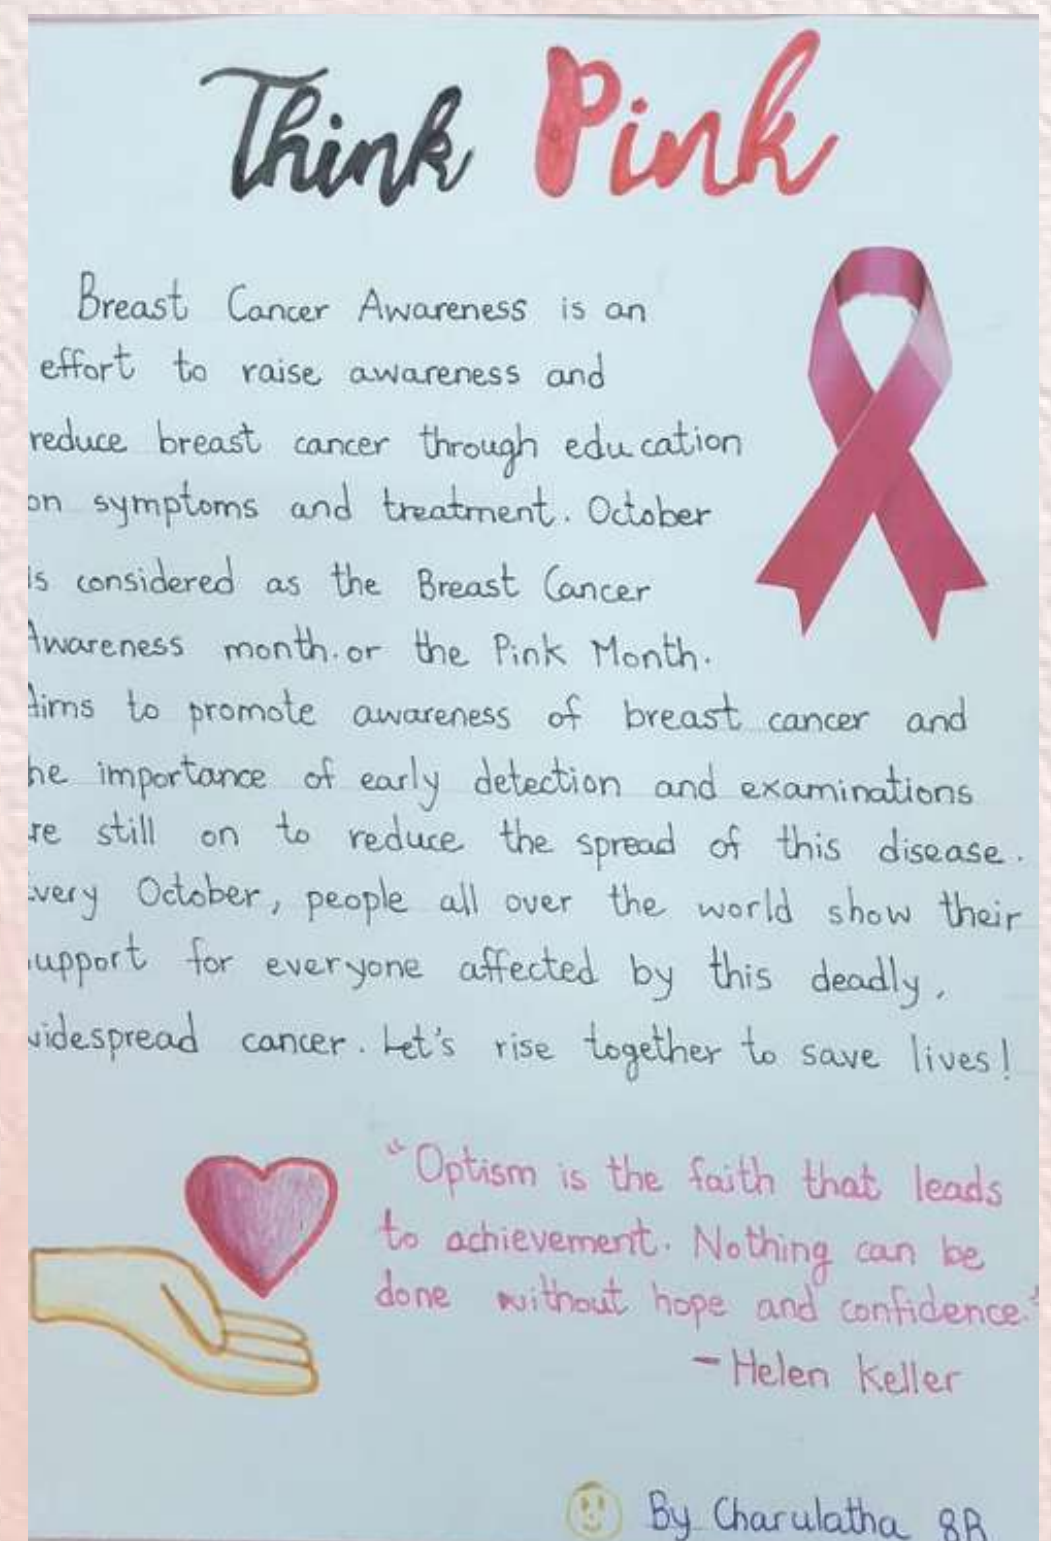 Think Pink
Breast Cancer Awareness is an
effort to raise awareness and
reduce breast cancer through education
on symptoms and treatment. October
is considered as the Breast Cancer
Awareness month.or the Pink Month.
Aims to promote awareness of breast cancer and
he importance of early detection and examinations
re still on to reduce the spread of this disease.
Every October, people all over the world show their
upport for everyone affected by this deadly,
widespread cancer. Let's rise together to save lives!
"Optism is the faith that leads
to achievement. Nothing can be
done without hope and confidence."
- Helen Keller
By Charulatha 8B